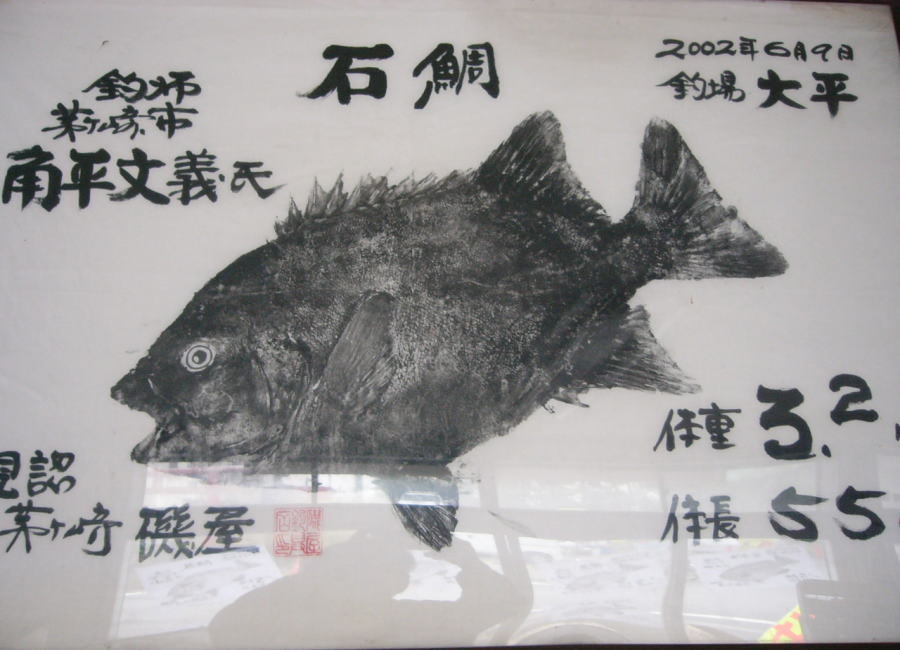 石鯛
2002年6月9日
釣場 大平
釣师
茅ヶ崎市
角平文義氏
体重 3.2
体長 55
見認
茅ヶ崎 磯屋